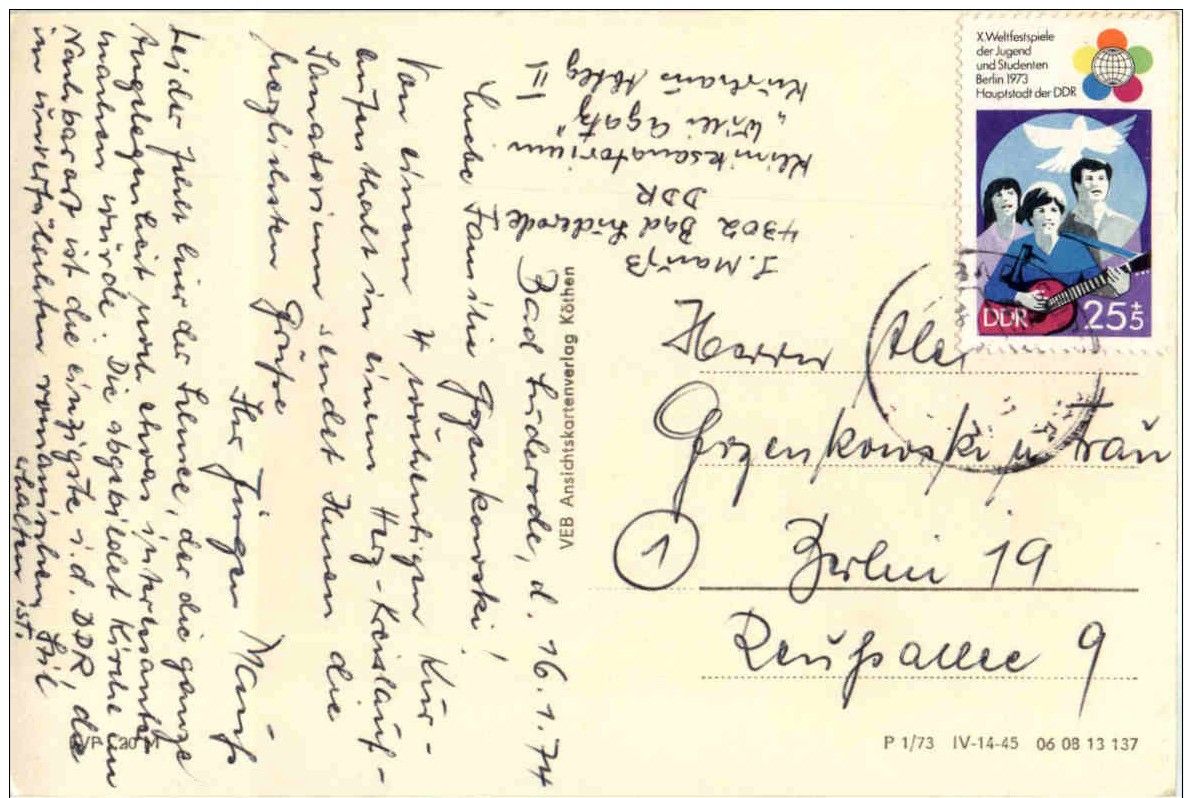 Bad Suderode, d. 16.1.74
Liebe Familie Gozenkowski!
Von einem 4 wöchentigen Kur-
aufenthalt in einem Herz-Kreislauf-
Sanatorium sendet Ihnen die
herzlichsten Grüße
Ihr Jürgen Mauß
Leider fehlt hier der Schnee, der die ganze
Angelegenheit noch etwas interessanter
machen würde. Die abgebildet Kirche im
Nachbarort ist die einzigste i.d. DDR, die
im unverfälschten romanischen Stil
erhalten ist.
J. Mauß
4302 Bad Suderode
DDR
Kliniksanatorium
„Willi Agatz"
Kurhaus Abteg II
VEB Ansichtskartenverlag Köthen
X. Weltfestspiele
der Jugend
und Studenten
Berlin 1973
Hauptstadt der DDR
DDR 25+5
Herrn
Gozenkowski u Frau
1
Berlin 19
Reußallee 9
30 M
P 1/73 IV-14-45 06 08 13 137